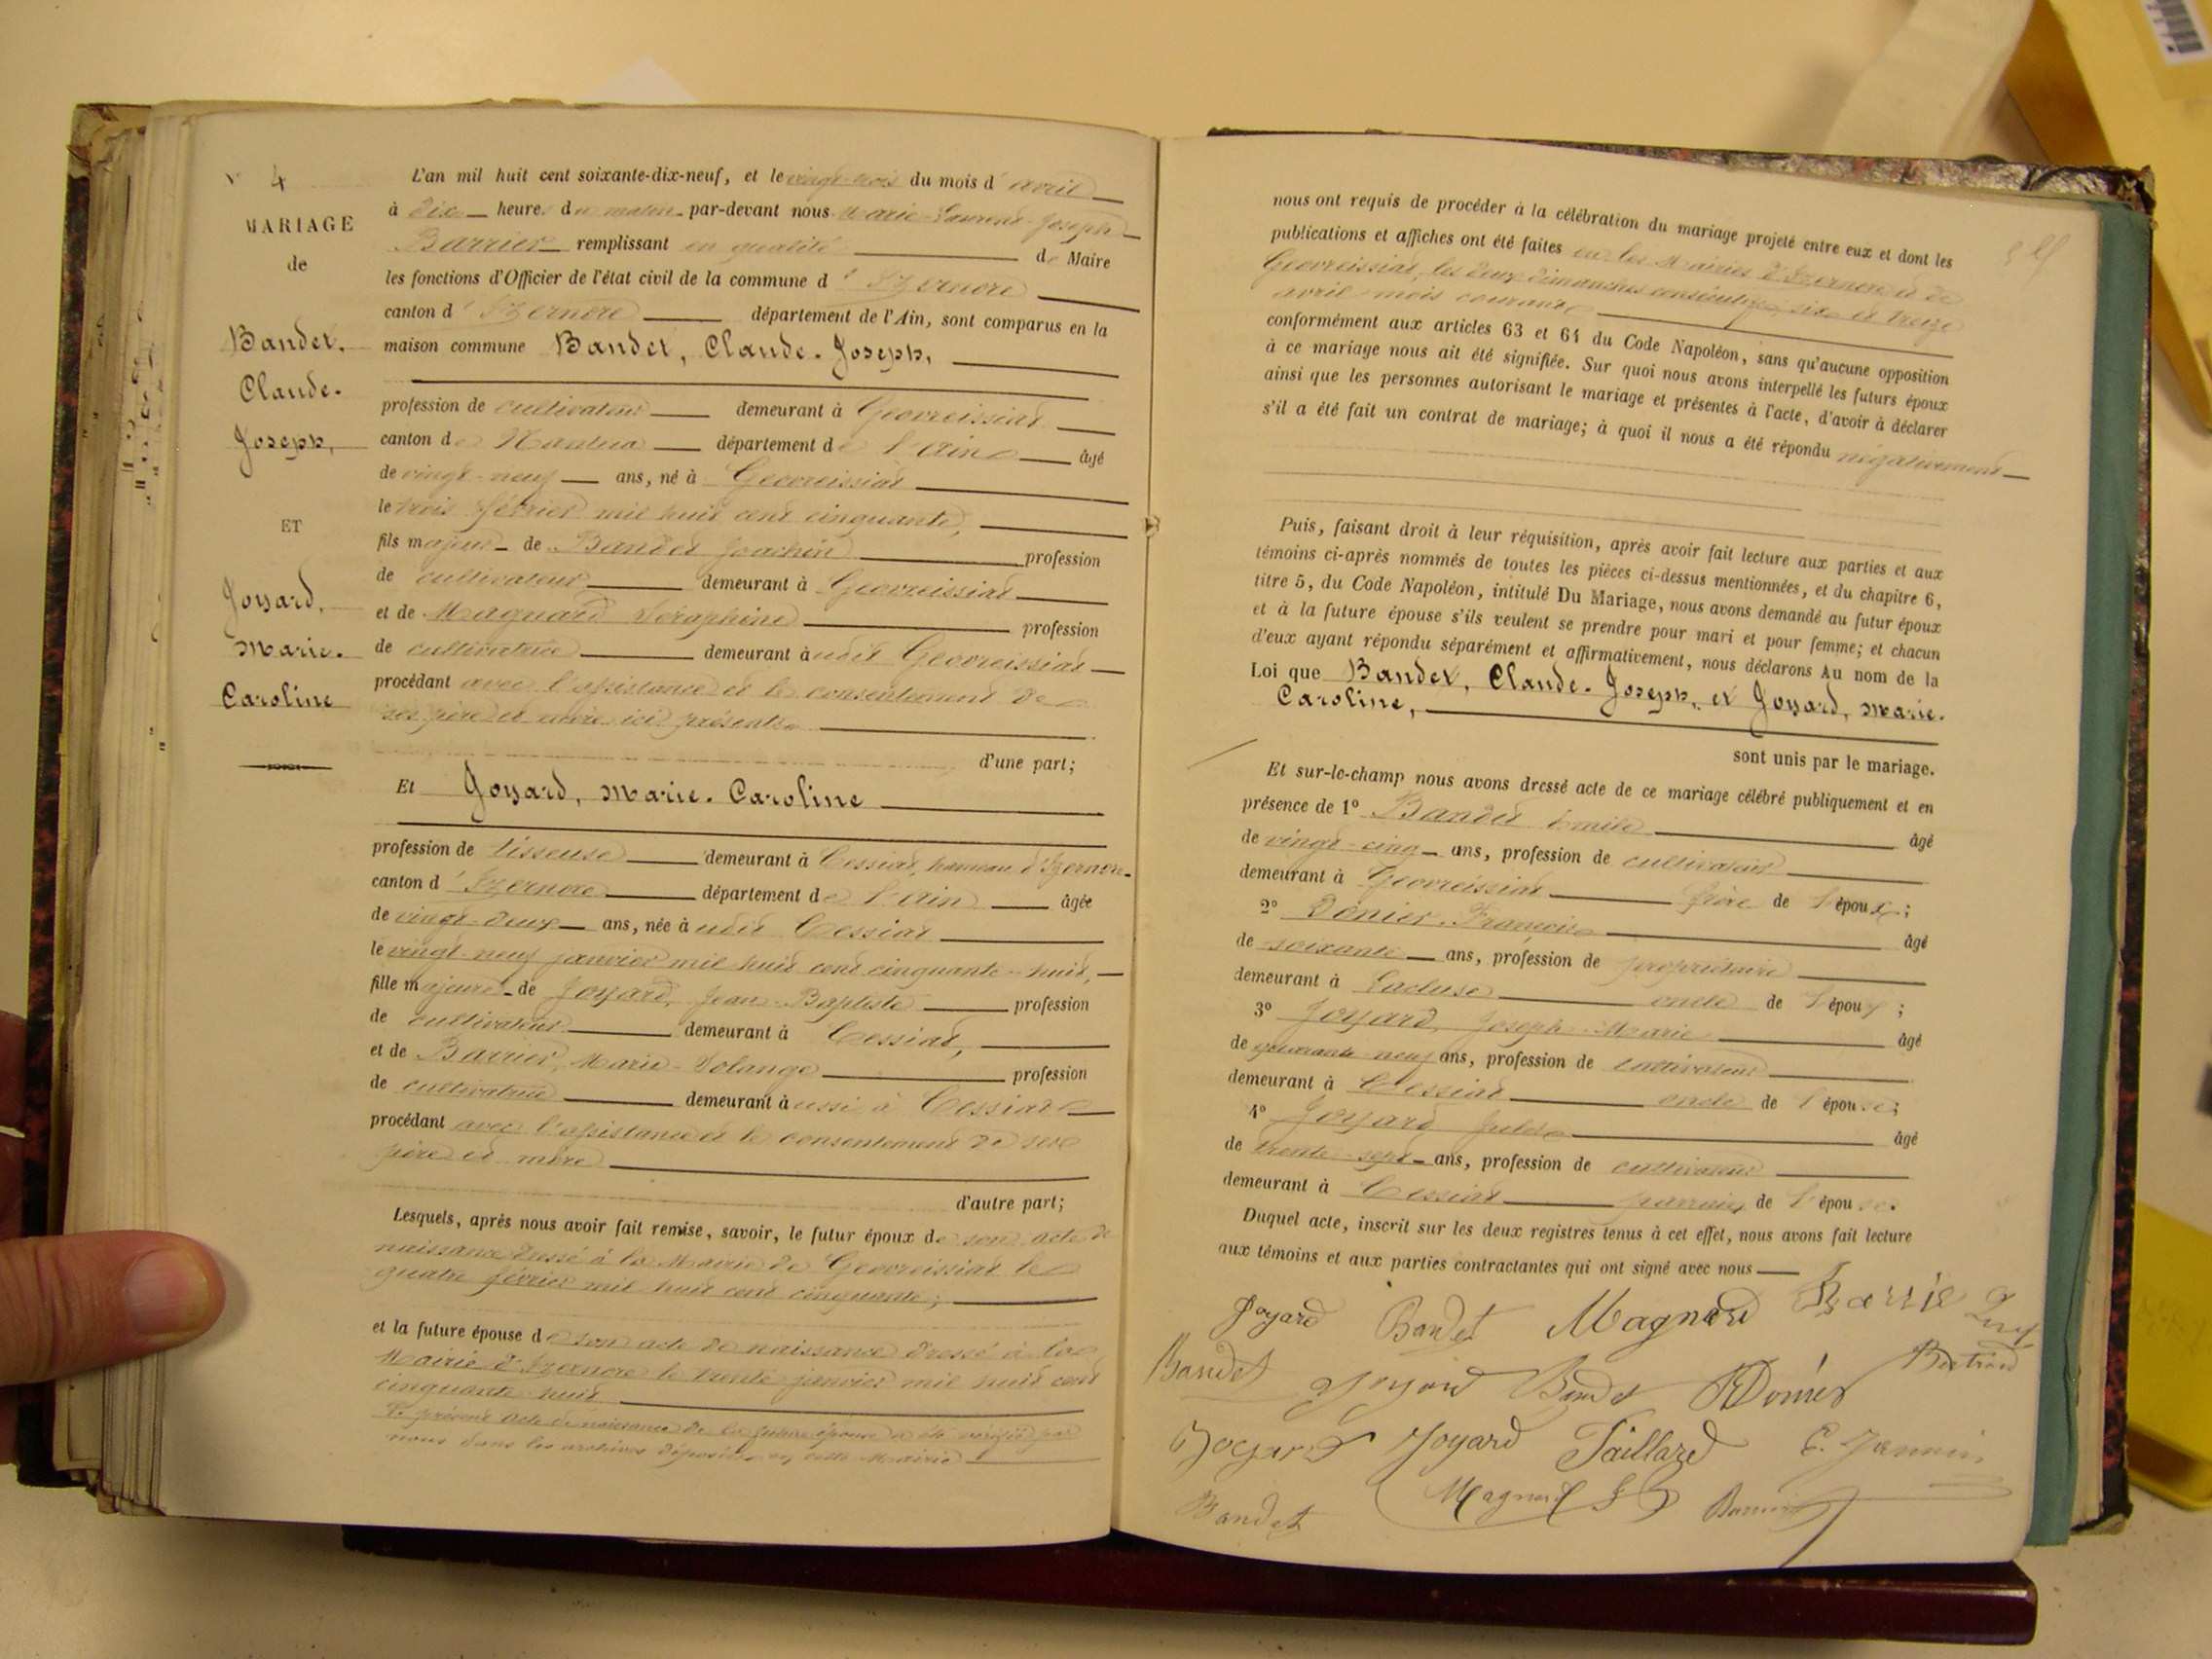 4
MARIAGE
de
Bandet,
Claude-
Joseph,
ET
Joyard,
Marie-
Caroline
L'an mil huit cent soixante-dix-neuf, et le vingt-trois du mois d'avril
à dix heures du matin par-devant nous Marie-Laurent-Joseph
Barrier remplissant en qualité de Maire
les fonctions d'Officier de l'état civil de la commune d'Izernore
canton d'Izernore département de l'Ain, sont comparus en la
maison commune Bandet, Claude-Joseph,
profession de cultivateur demeurant à Géovreissiat
canton de Nantua département de l'Ain âgé
de vingt-neuf ans, né à Géovreissiat
le trois février mil huit cent cinquante,
fils majeur de Bandet Joachin profession
de cultivateur demeurant à Géovreissiat
et de Magnard Séraphine profession
de cultivatrice demeurant audit Géovreissiat
procédant avec l'assistance et le consentement de
ses père et mère ici présents
d'une part;
Et Joyard, Marie-Caroline
profession de tisseuse demeurant à Cessiat, hameau d'Izernore
canton d'Izernore département de l'Ain âgée
de vingt-deux ans, née audit Cessiat
le vingt-neuf janvier mil huit cent cinquante-huit,
fille majeure de Joyard, Jean-Baptiste profession
de cultivateur demeurant à Cessiat,
et de Barrier, Marie-Solange profession
de cultivatrice demeurant aussi à Cessiat
procédant avec l'assistance et le consentement de ses
père et mère
d'autre part;
Lesquels, après nous avoir fait remise, savoir, le futur époux de son acte de
naissance dressé à la Mairie de Géovreissiat le
quatre février mil huit cent cinquante;
et la future épouse de son acte de naissance dressé à la
Mairie d'Izernore le trente janvier mil huit cent
cinquante-huit
Le présent acte de naissance de la future épouse a été vérifié par
nous dans les archives déposées en cette Mairie
nous ont requis de procéder à la célébration du mariage projeté entre eux et dont les
publications et affiches ont été faites en les Mairies d'Izernore et de
Géovreissiat, les deux dimanches consécutifs, six et treize
avril mois courant
conformément aux articles 63 et 64 du Code Napoléon, sans qu'aucune opposition
à ce mariage nous ait été signifiée. Sur quoi nous avons interpellé les futurs époux
ainsi que les personnes autorisant le mariage et présentes à l'acte, d'avoir à déclarer
s'il a été fait un contrat de mariage; à quoi il nous a été répondu négativement
Puis, faisant droit à leur réquisition, après avoir fait lecture aux parties et aux
témoins ci-après nommés de toutes les pièces ci-dessus mentionnées, et du chapitre 6,
titre 5, du Code Napoléon, intitulé Du Mariage, nous avons demandé au futur époux
et à la future épouse s'ils veulent se prendre pour mari et pour femme; et chacun
d'eux ayant répondu séparément et affirmativement, nous déclarons Au nom de la
Loi que Bandet, Claude-Joseph, et Joyard, Marie-
Caroline,
sont unis par le mariage.
Et sur-le-champ nous avons dressé acte de ce mariage célébré publiquement et en
présence de 1° Bandet Emile âgé
de vingt-cinq ans, profession de cultivateur
demeurant à Géovreissiat frère de l'époux;
2° Domier, François âgé
de soixante ans, profession de propriétaire
demeurant à Lacluse oncle de l'époux;
3° Joyard, Joseph-Marie âgé
de quarante-neuf ans, profession de cultivateur
demeurant à Cessiat oncle de l'épouse;
4° Joyard Jules âgé
de trente-sept ans, profession de cultivateur
demeurant à Cessiat parrain de l'épouse.
Duquel acte, inscrit sur les deux registres tenus à cet effet, nous avons fait lecture
aux témoins et aux parties contractantes qui ont signé avec nous
Joyard Bandet Magnard Barrier
Bandet Joyard Bandet Domier Bertrand
Joyard Joyard Taillard E. Jannin
Bandet Magnard Barrier